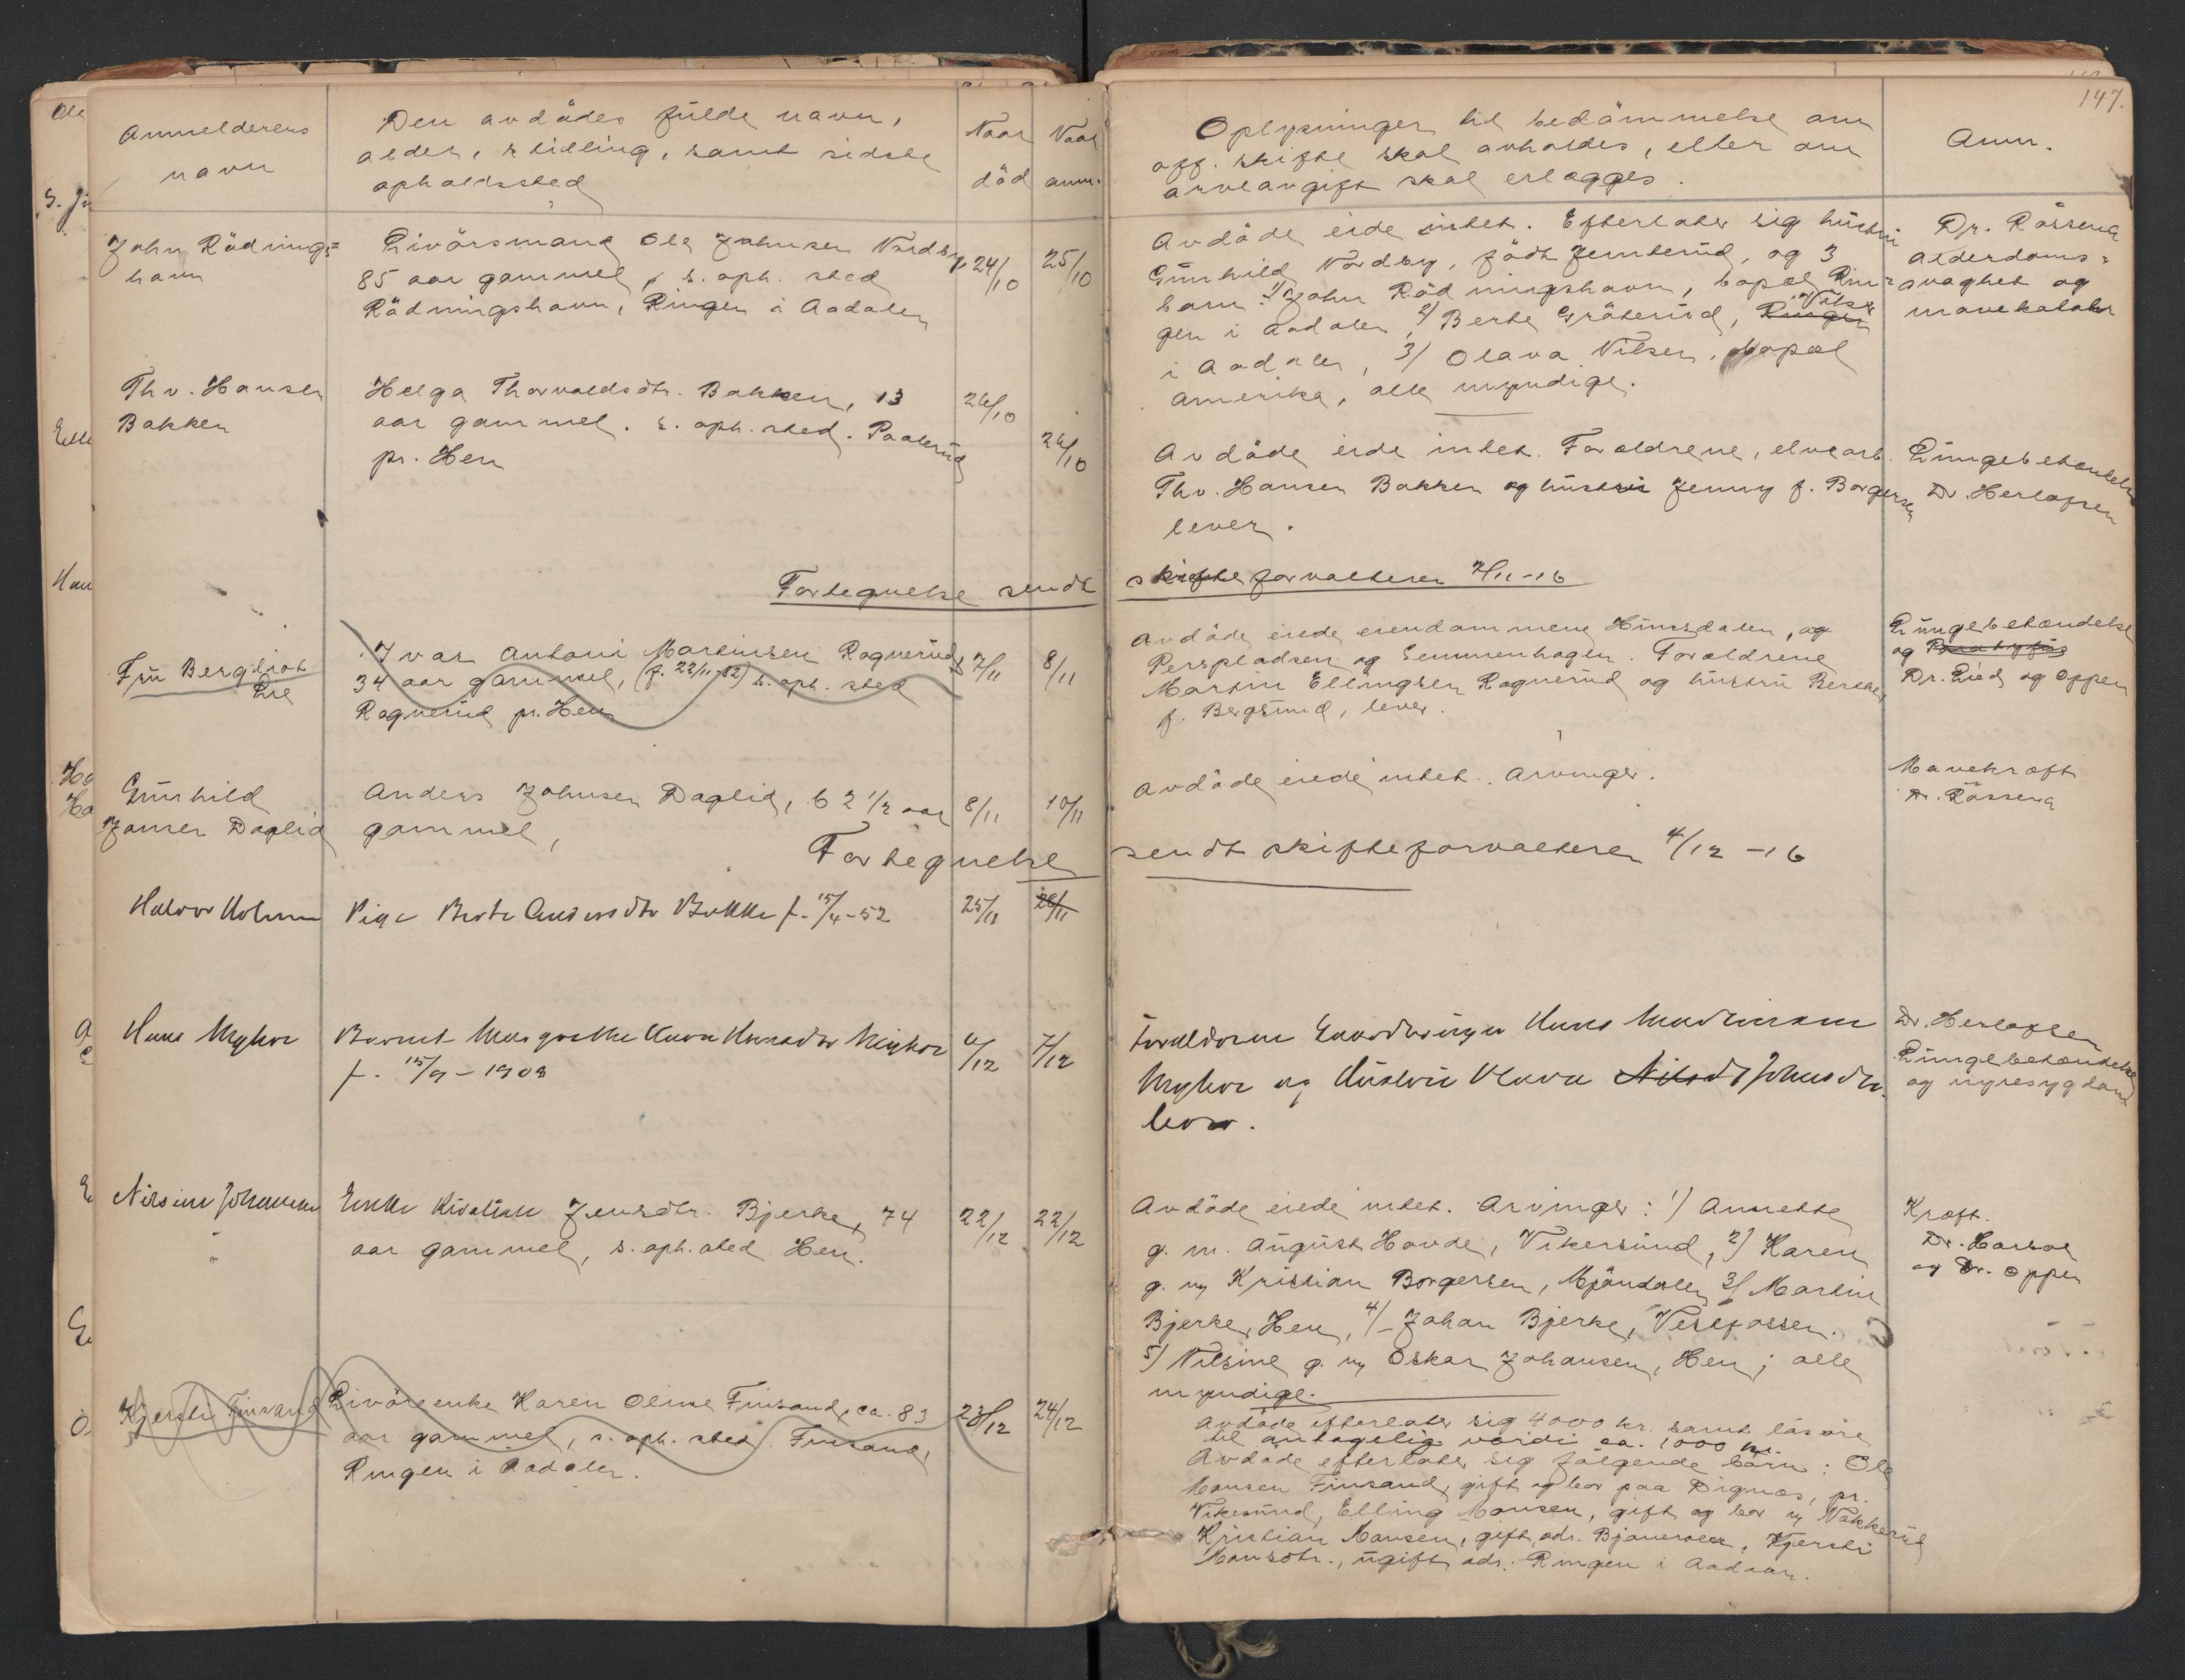 147.
Anmelderens
navn
Den avdödes fulde navn,
alder, stilling, samt sidste
opholdssted
Naar
död
Naar
anm.
Oplysninger til bedömmelse om
off. skifte skal avholdes, eller om
arveavgift skal erlægges.
Anm.
John Rödnings=
havn
Livörsmand Ole Johnsen Nordby,
85 aar gammel, s. oph. sted
Rödningshavn, Ringen i Aadalen
24/10
25/10
Avdöde eide intet. Efterlater sig hustru
Gunhild Nordby, födt Jemterud, og 3
barn: 1) John Rödningshavn, bopæl Rin=
gen i Aadalen, 2) Berte Gräterud, Ringen
i Aadalen, 3) Olava Nilsen, bopæl
Amerika, alle myndige.
Dr. Rössena
alderdoms=
svaghet og
mavekatahr
Thv. Hansen
Bakken
Helga Thorvaldsdtr. Bakken, 13
aar gammel. s. oph. sted. Paalerud
pr. Hen
26/10
26/10
Avdöde eide intet. Forældrene, elvearb.
Thv. Hansen Bakken og hustru Jenny f. Borgersen
lever.
Lungebetændelse
Dr. Herlofsen
Fortegnelse sendt skifteforvalteren 2/11-16
Fru Bergliot
Rre
Ivar Antoni Martinsen Rognerud,
34 aar gammel, (f. 22/11-82) s. oph. sted
Rognerud pr. Hen
7/11
8/11
Avdöde eiede eiendommene Hunsdalen, og
Perspladsen og Semmenhagen. Forældrene
Martin Ellingsen Rognerud og hustru Berthe,
f. Bergsund, lever.
Lungebetændelse
og
Dr. Lied og Oppen
Gunhild
Jansen Daglid
Anders Johnsen Daglid, 62 1/2 aar
gammel,
8/11
10/11
Avdöde eiede intet. Arvinger.
Mavekræft
Dr. Rössena
Fortegnelse sendt skifteforvalteren 4/12-16
Halvor Holmen
Pige Berte Andersdtr Bakke f. 15/4-52
25/11
28/11
Hans Myhre
Barnet Margrethe Hansdtr Myhre
f. 15/9-1908
6/12
7/12
Forældrene Gaardbruger Hans Martinsen
Myhre og Hustru Olava Nilsdt Johnsdtr.
lever.
Dr. Herlofsen
Lungebetændelse
og nyresygdom
Nilsine Johansen
Enke Kirstine Jensdtr. Bjerke, 74
aar gammel, s. oph. sted Hen.
22/12
22/12
Avdöde eiede intet. Arvinger: 1) Annette
g. m. August Hovde, Vikersund, 2) Karen
g. m. Kristian Borgersen, Mjöndalen 3) Martin
Bjerke, Hen, 4) Johan Bjerke, Vestfossen.
5) Nilsine g. m. Oskar Johansen, Hen; alle
myndige.
Kræft.
Dr.
og Dr. Oppen
Kjersti Finsand
Livörsenke Karen Oline Finsand, ca. 83
aar gammel, s. oph. sted Finsand,
Ringen i Aadalen.
23/12
24/12
Avdöde efterlater sig 4000 kr. samt lösöre
til antagelig værdi ca. 1000 kr.
Avdöde efterlater sig fölgende börn: Ole
Monsen Finsand, gift og bor paa Dignæs, pr.
Vikersund, Elling Monsen, gift og bor i Nakkerud
Kristian Monsen, gift, adr. Bjoneroen, Kjersti
Monsdtr., ugift, adr. Ringen i Aadalen.